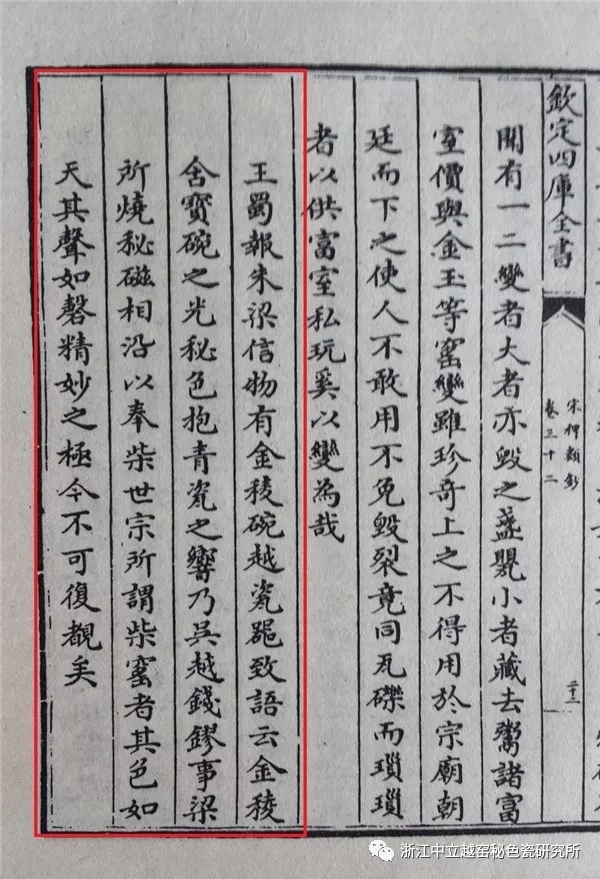 欽定四庫全書
宋稗類鈔
卷三十二
間有一二變者大者亦毀之盞甖小者藏去鬻諸富
室價與金玉等窑變雖珍奇上之不得用於宗廟朝
廷而下之使人不敢用不免毀裂竟同瓦礫而瑣瑣
者以供富室私玩奚以變為哉
王蜀報朱梁信物有金稜碗越瓷器致語云金稜
舍寳碗之光秘色抱青瓷之響乃吳越錢鏐事梁
所燒秘磁相沿以奉柴世宗所謂柴窑者其色如
天其聲如磬精妙之極今不可復覩矣
浙江中立越窑秘色瓷研究所